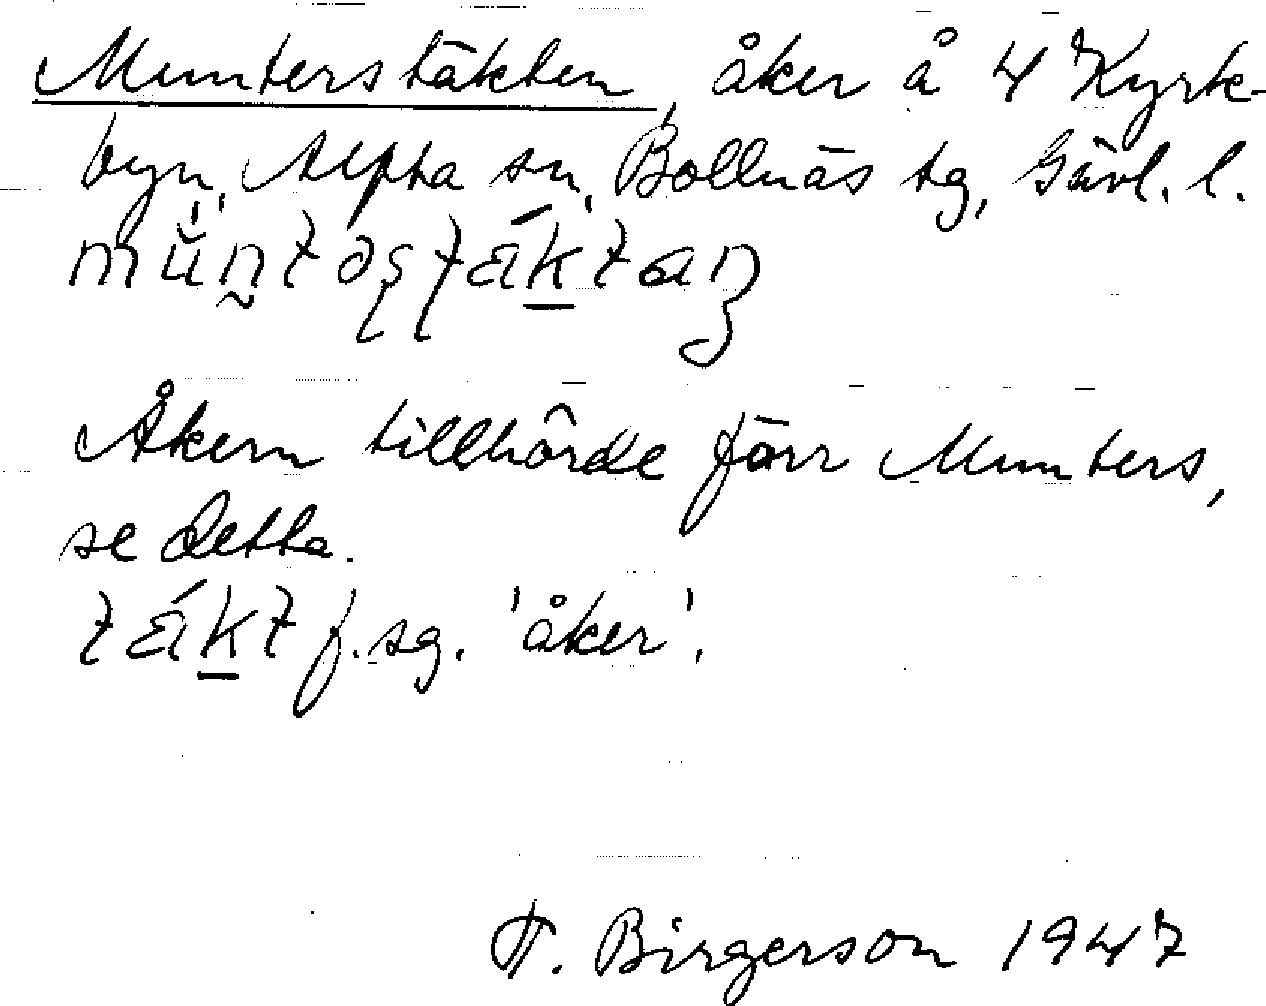 Munterstäkten, åker å 4 Kyrk-
byn, Alfta sn, Bollnäs tg, Gävl. l.
Åkern tillhörde förr Munters,
se detta.
f. sg. 'åker'.
T. Birgerson 1947